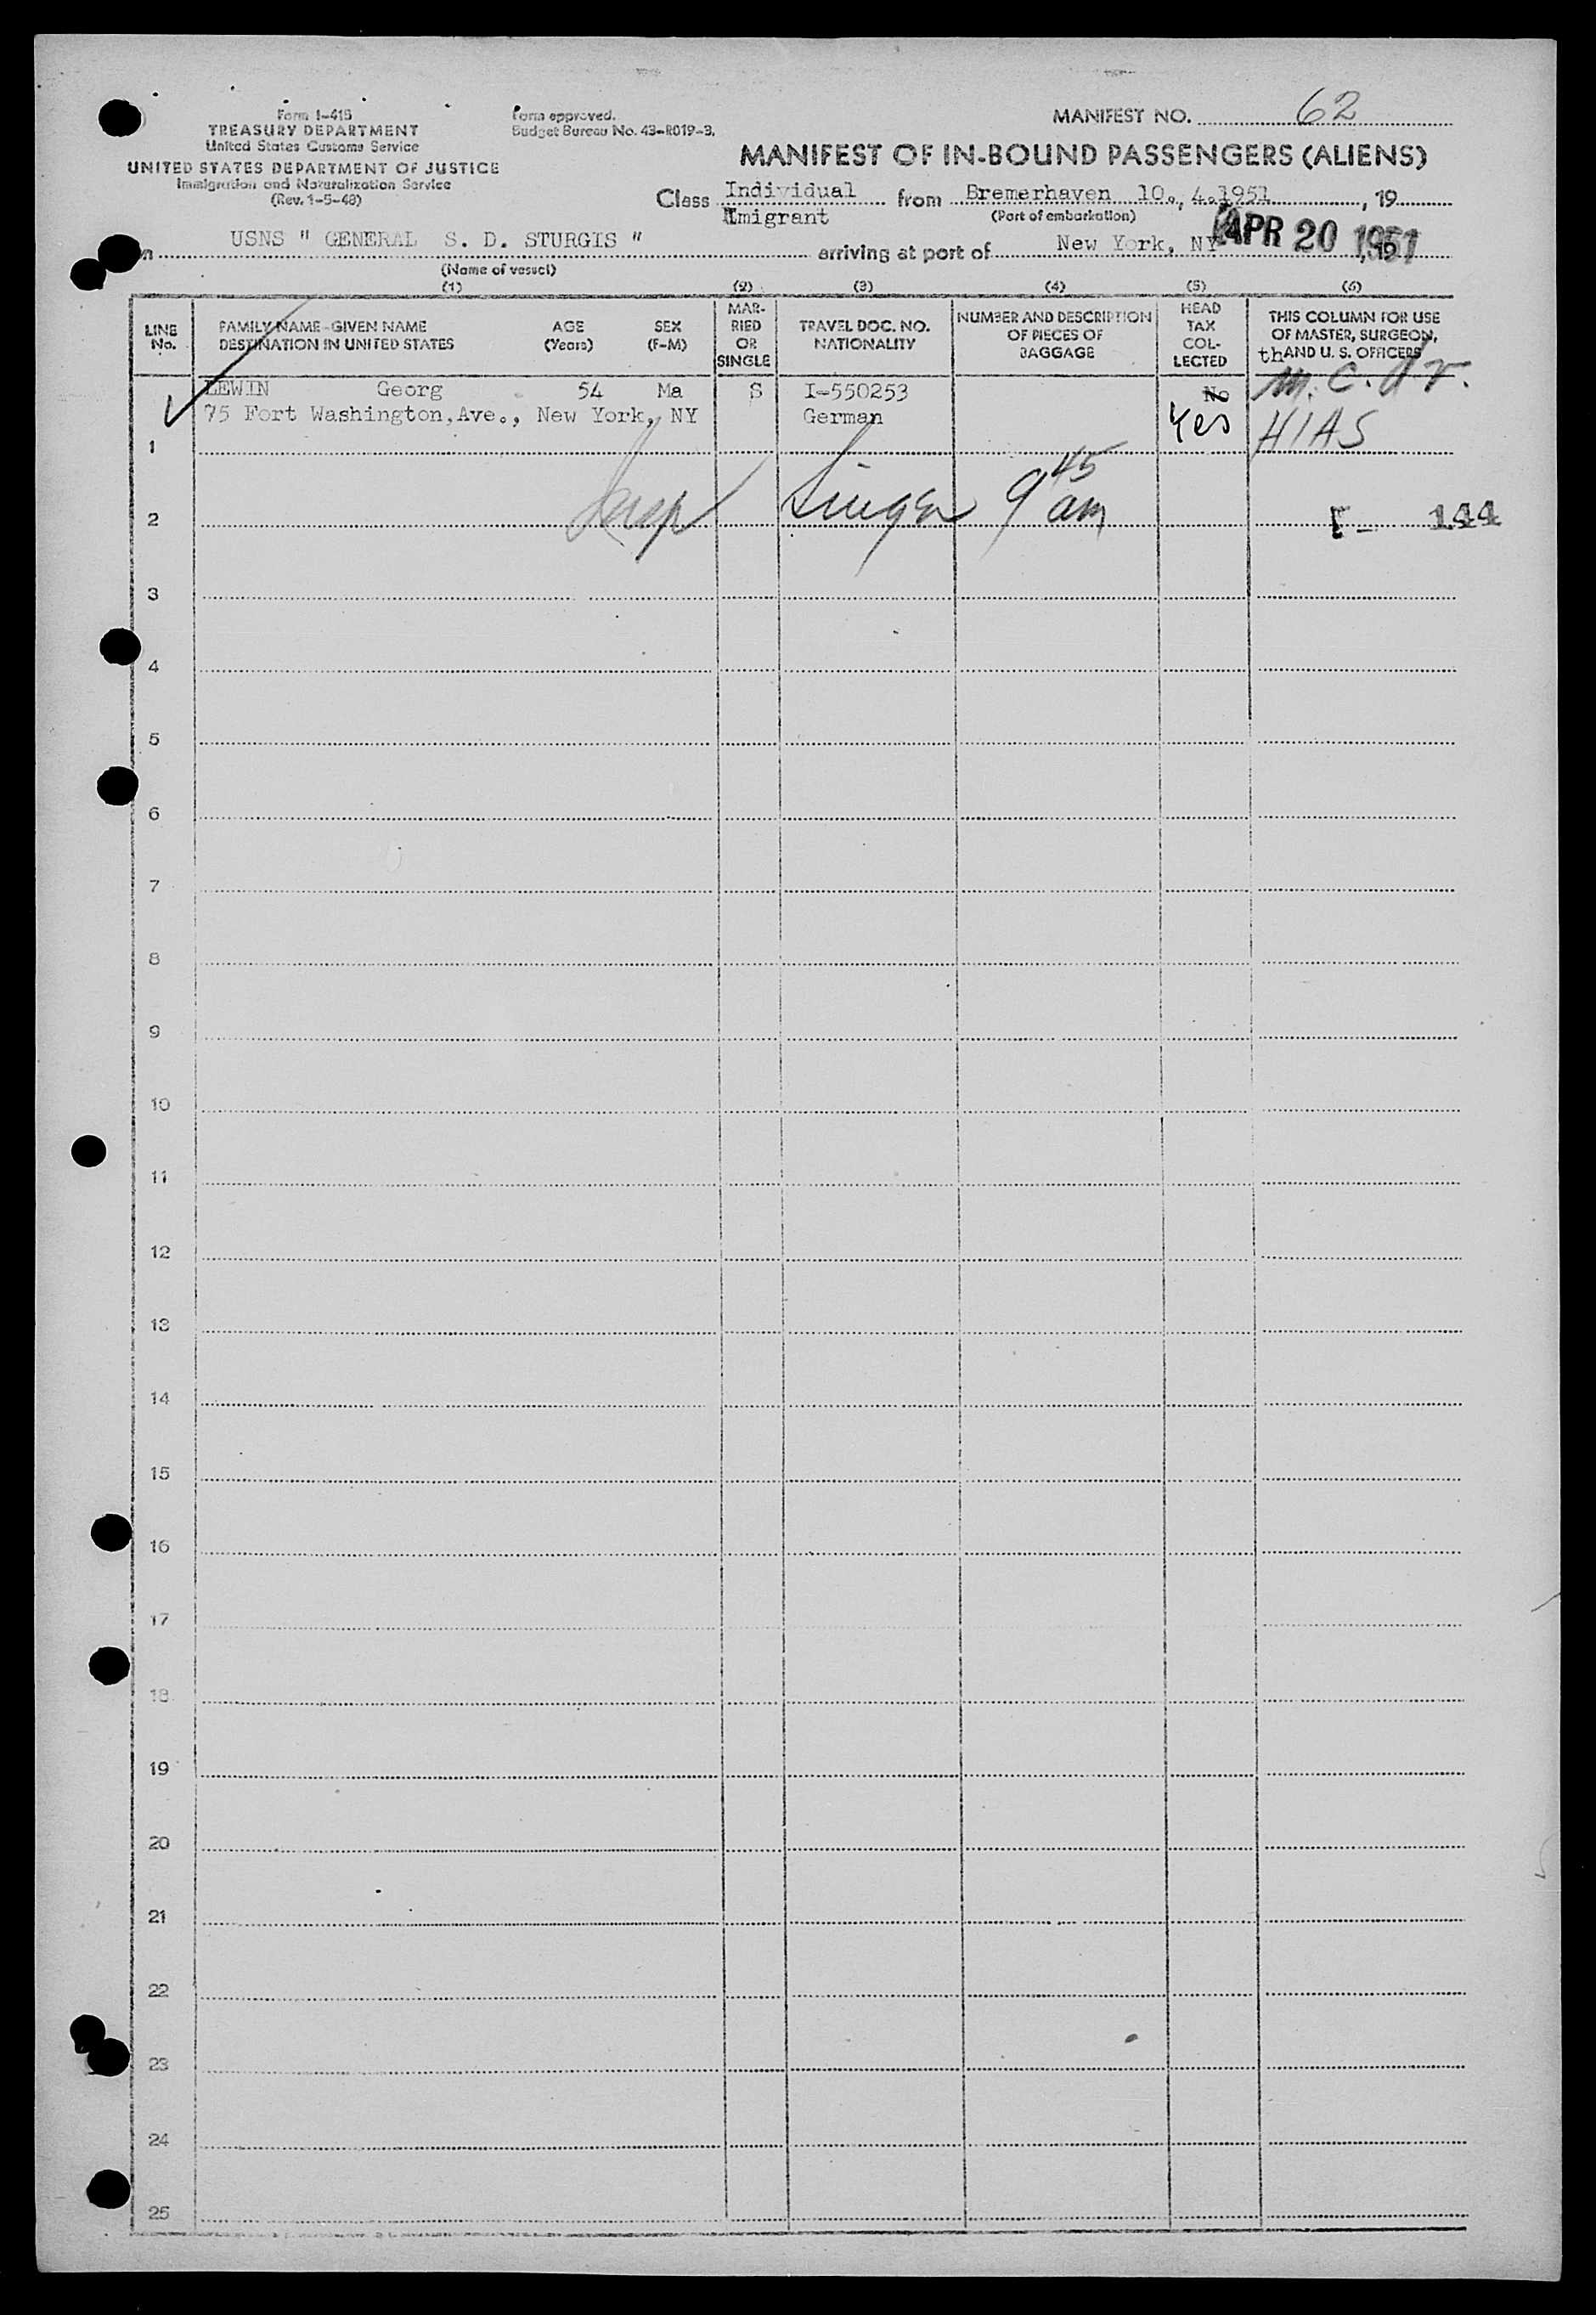 Form I-415
TREASURY DEPARTMENT
United States Customs Service
UNITED STATES DEPARTMENT OF JUSTICE
Immigration and Naturalization Service
(Rev. 1-5-48)
Form approved.
Budget Bureau No. 43-R019-3.
MANIFEST NO. 62
MANIFEST OF IN-BOUND PASSENGERS (ALIENS)
Class Individual from Bremerhaven 10., 4.1951, 19
Imigrant (Port of embarkation)
n USNS " GENERAL S. D. STURGIS " arriving at port of New York, NY APR 20 1951, 19
(Name of vessel)
(1) (2) (3) (4) (5) (6)
LINE No.
FAMILY NAME-GIVEN NAME AGE SEX
DESTINATION IN UNITED STATES (Years) (F-M)
MAR-
RIED
OR
SINGLE
TRAVEL DOC. NO.
NATIONALITY
NUMBER AND DESCRIPTION
OF PIECES OF
BAGGAGE
HEAD
TAX
COL-
LECTED
THIS COLUMN FOR USE
OF MASTER, SURGEON,
th AND U. S. OFFICERS
LEWIN Georg 54 Ma S I-550253 No
75 Fort Washington,Ave., New York, NY German Yes HIAS
1
2 Singer 9 45 am 144
3
4
5
6
7
8
9
10
11
12
13
14
15
16
17
18
19
20
21
22
23
24
25